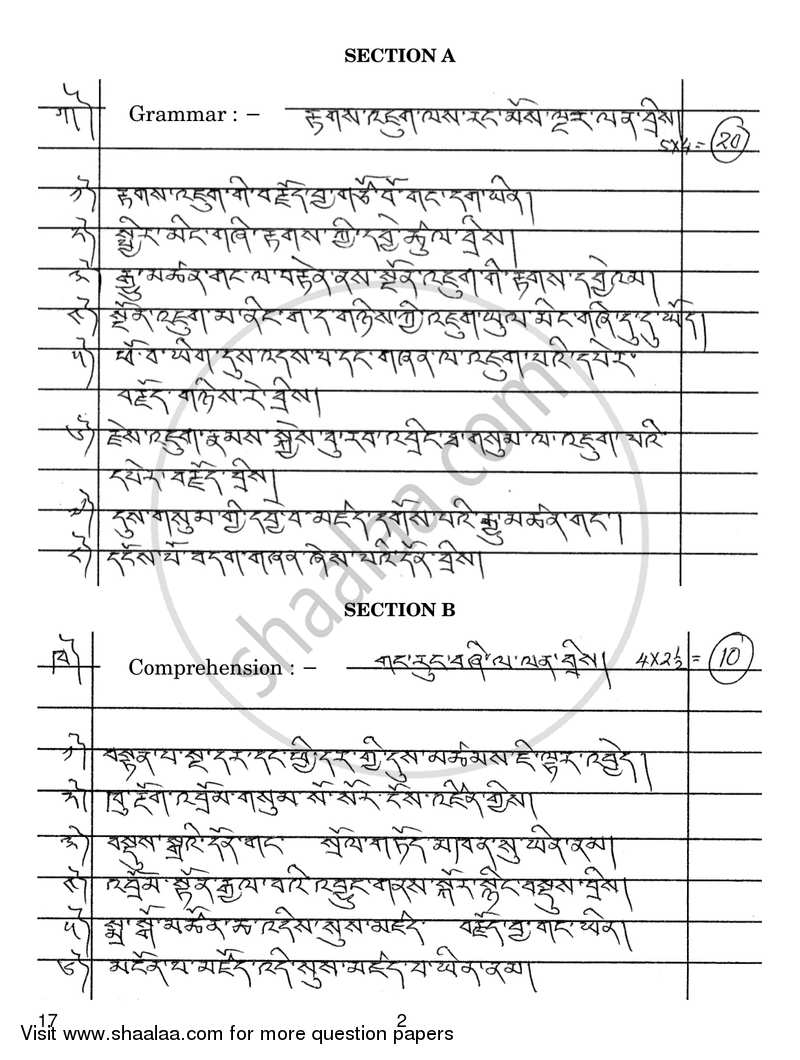 SECTION A
ཀ༽ Grammar : – རྟགས་འཇུག་ལས་རང་མོས་ལྔར་ལན་བྲིས།
5x4 = 20
༡༽ རྟགས་འཇུག་གི་བརྗོད་བྱ་གཙོ་བོ་གང་དག་ཡིན།
༢༽ སྤྱིར་མིང་གཞི་རྟགས་ཀྱི་དབྱེ་ཚུལ་བྲིས།
༣༽ རྒྱུ་མཚན་གང་ལ་བརྟེན་ནས་སྔོན་འཇུག་གི་རྟགས་དབྱེའམ།
༤༽ སྔོན་འཇུག་མ་ནིང་ག་ད་གཉིས་ཀྱི་འཇུག་ཡུལ་མིང་གཞི་དུ་དུ་ཡོད།
༥༽ ཕོ་བ་ཡིག་དུས་འདས་པ་དང་གཞན་ལ་འཇུག་པའི་དཔེར་
བརྗོད་གཉིས་རེ་བྲིས།
༦༽ རྗེས་འཇུག་རྣམས་སྐྱེས་བུ་རབ་འབྲིང་ཐ་གསུམ་ལ་འཇུག་པའི་
དཔེར་བརྗོད་བྲིས།
༧༽ དུས་གསུམ་གྱི་དབྱེ་བ་མཛད་དགོས་པའི་རྒྱུ་མཚན་གང་།
༨༽ དངོས་པོ་བདག་གཞན་ཞེས་པའི་དོན་བྲིས།
SECTION B
ཁ༽ Comprehension : – གང་རུང་བཞི་ལ་ལན་བྲིས། 4x2½ = 10
༡༽ བསྟན་པ་སྔ་དར་དང་ཕྱི་དར་གྱི་དུས་མཚམས་ཇི་ལྟར་འབྱེད།
༢༽ ཁུ་རྔོག་འབྲོམ་གསུམ་སོ་སོར་ངོས་འཛིན་གྱིས།
༣༽ བསྡུས་སྒྲའི་དོན་གང་ སྲོལ་གཏོད་མཁན་སུ་ཡིན་ནམ།
༤༽ འབྲོམ་སྟོན་རྒྱལ་བའི་འབྱུང་གནས་སྐོར་སྙིང་བསྡུས་བྲིས།
༥༽ སྨྲ་སྒོ་མཚོན་ཆ་འདིས་སུས་མཛད་ བརྗོད་བྱ་གང་ཡིན།
༦༽ མངོན་པ་མཛོད་འདི་སུས་མཛད་པ་ཡིན་ནམ།
17 2
Visit www.shaalaa.com for more question papers
shaalaa.com